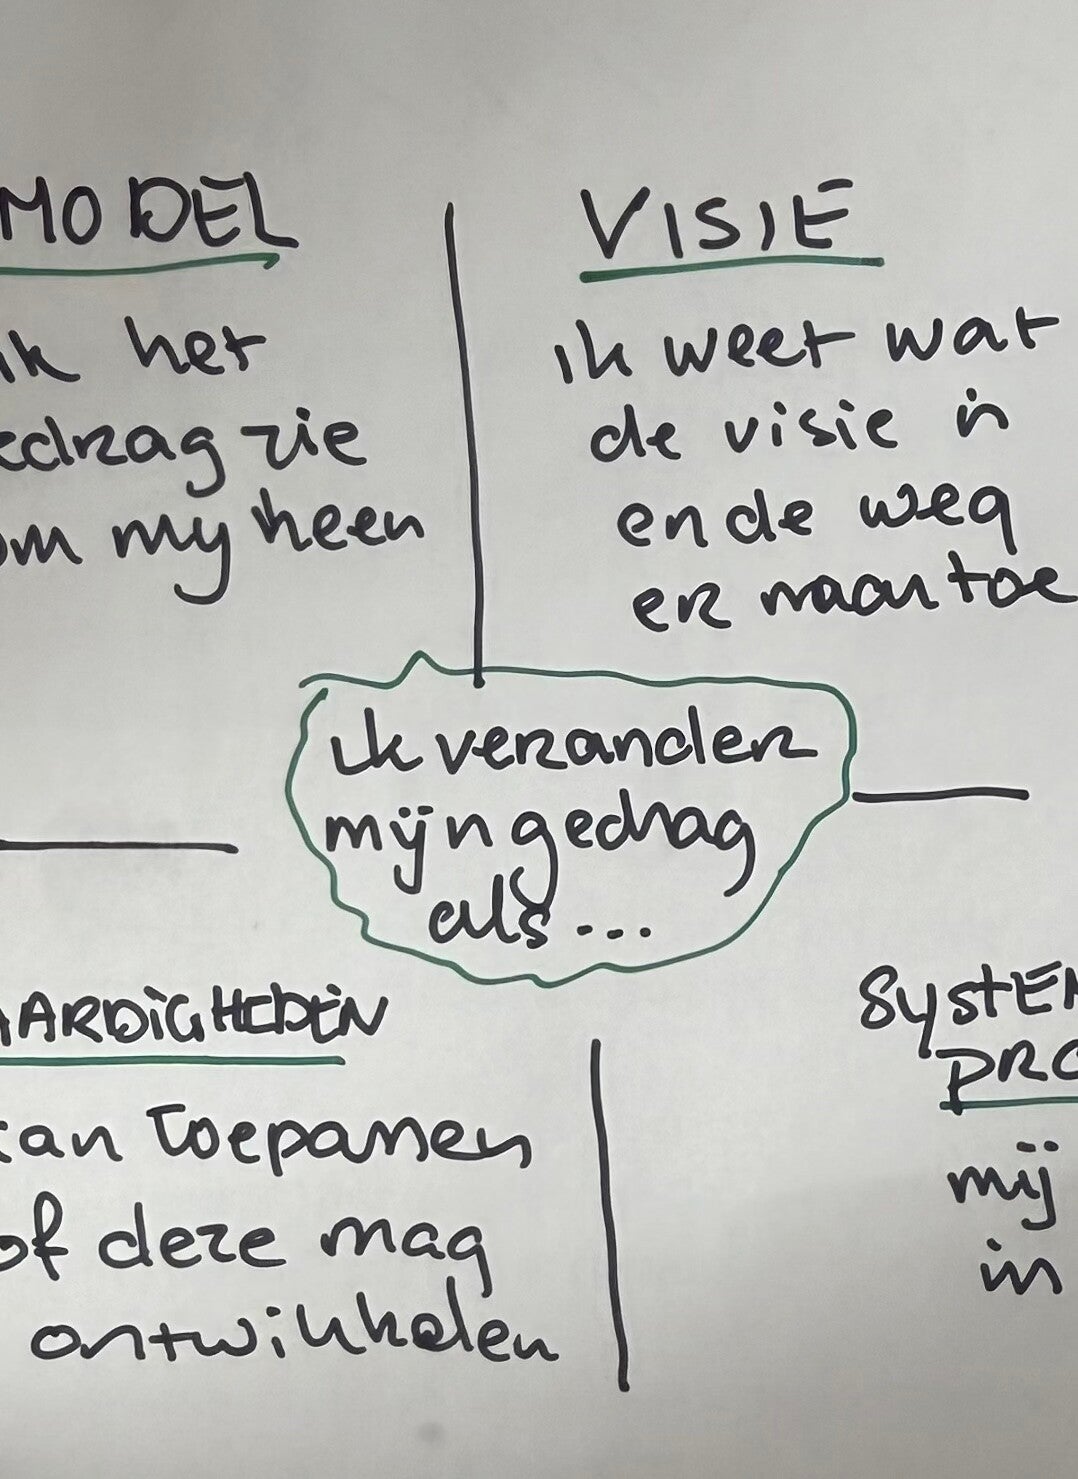 MODEL
ik het
edrag zie
om my heen
VISIE
ik weet wat
de visie is
en de weg
er naar toe
ik verander
mijn gedrag
als...
AARDIGHEDEN
kan toepassen
of deze mag
ontwikkelen
SYSTEM
PRO
mij
in